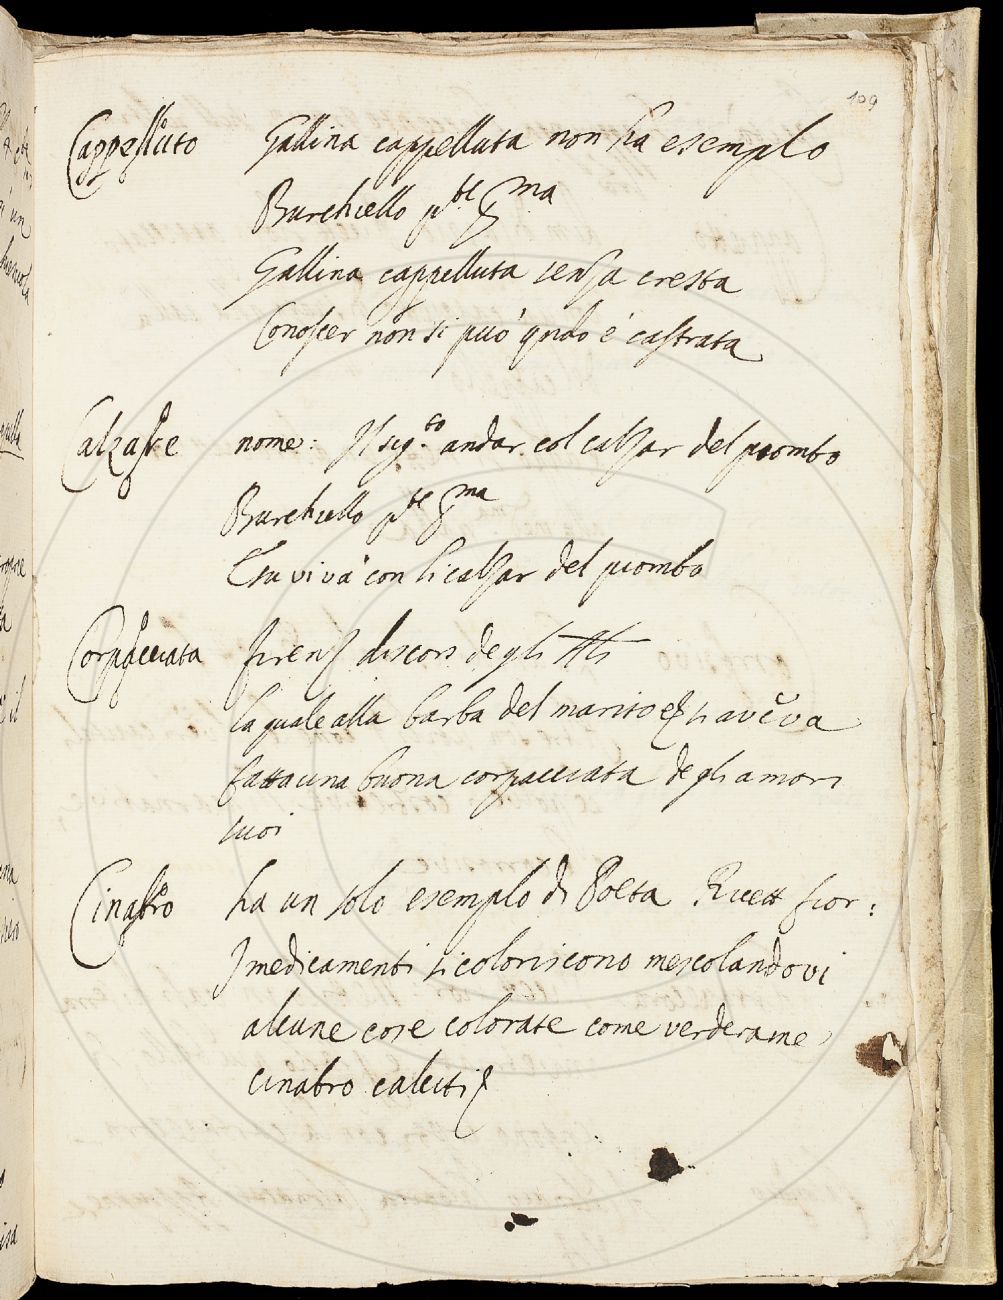 109
Cappelluto Gallina cappelluta non ha esempio
Burchiello pte pma
Gallina cappelluta senza cresta
Conoscer non si può qndo é castrata
Calzare nome: Il sig.to andar col calzar del piombo
Burchiello pte pma
viva con li calzar del piombo
Corpacciata firenz discors degli
la quale alla barba del marito si aveva
fatta una buona corpacciata degli amori
suoi
Cinabro ha un solo esempio di Poeta Ricett fior:
I medicamenti si coloriscono mescolandovi
alcune cose colorate come verderame
cinabro